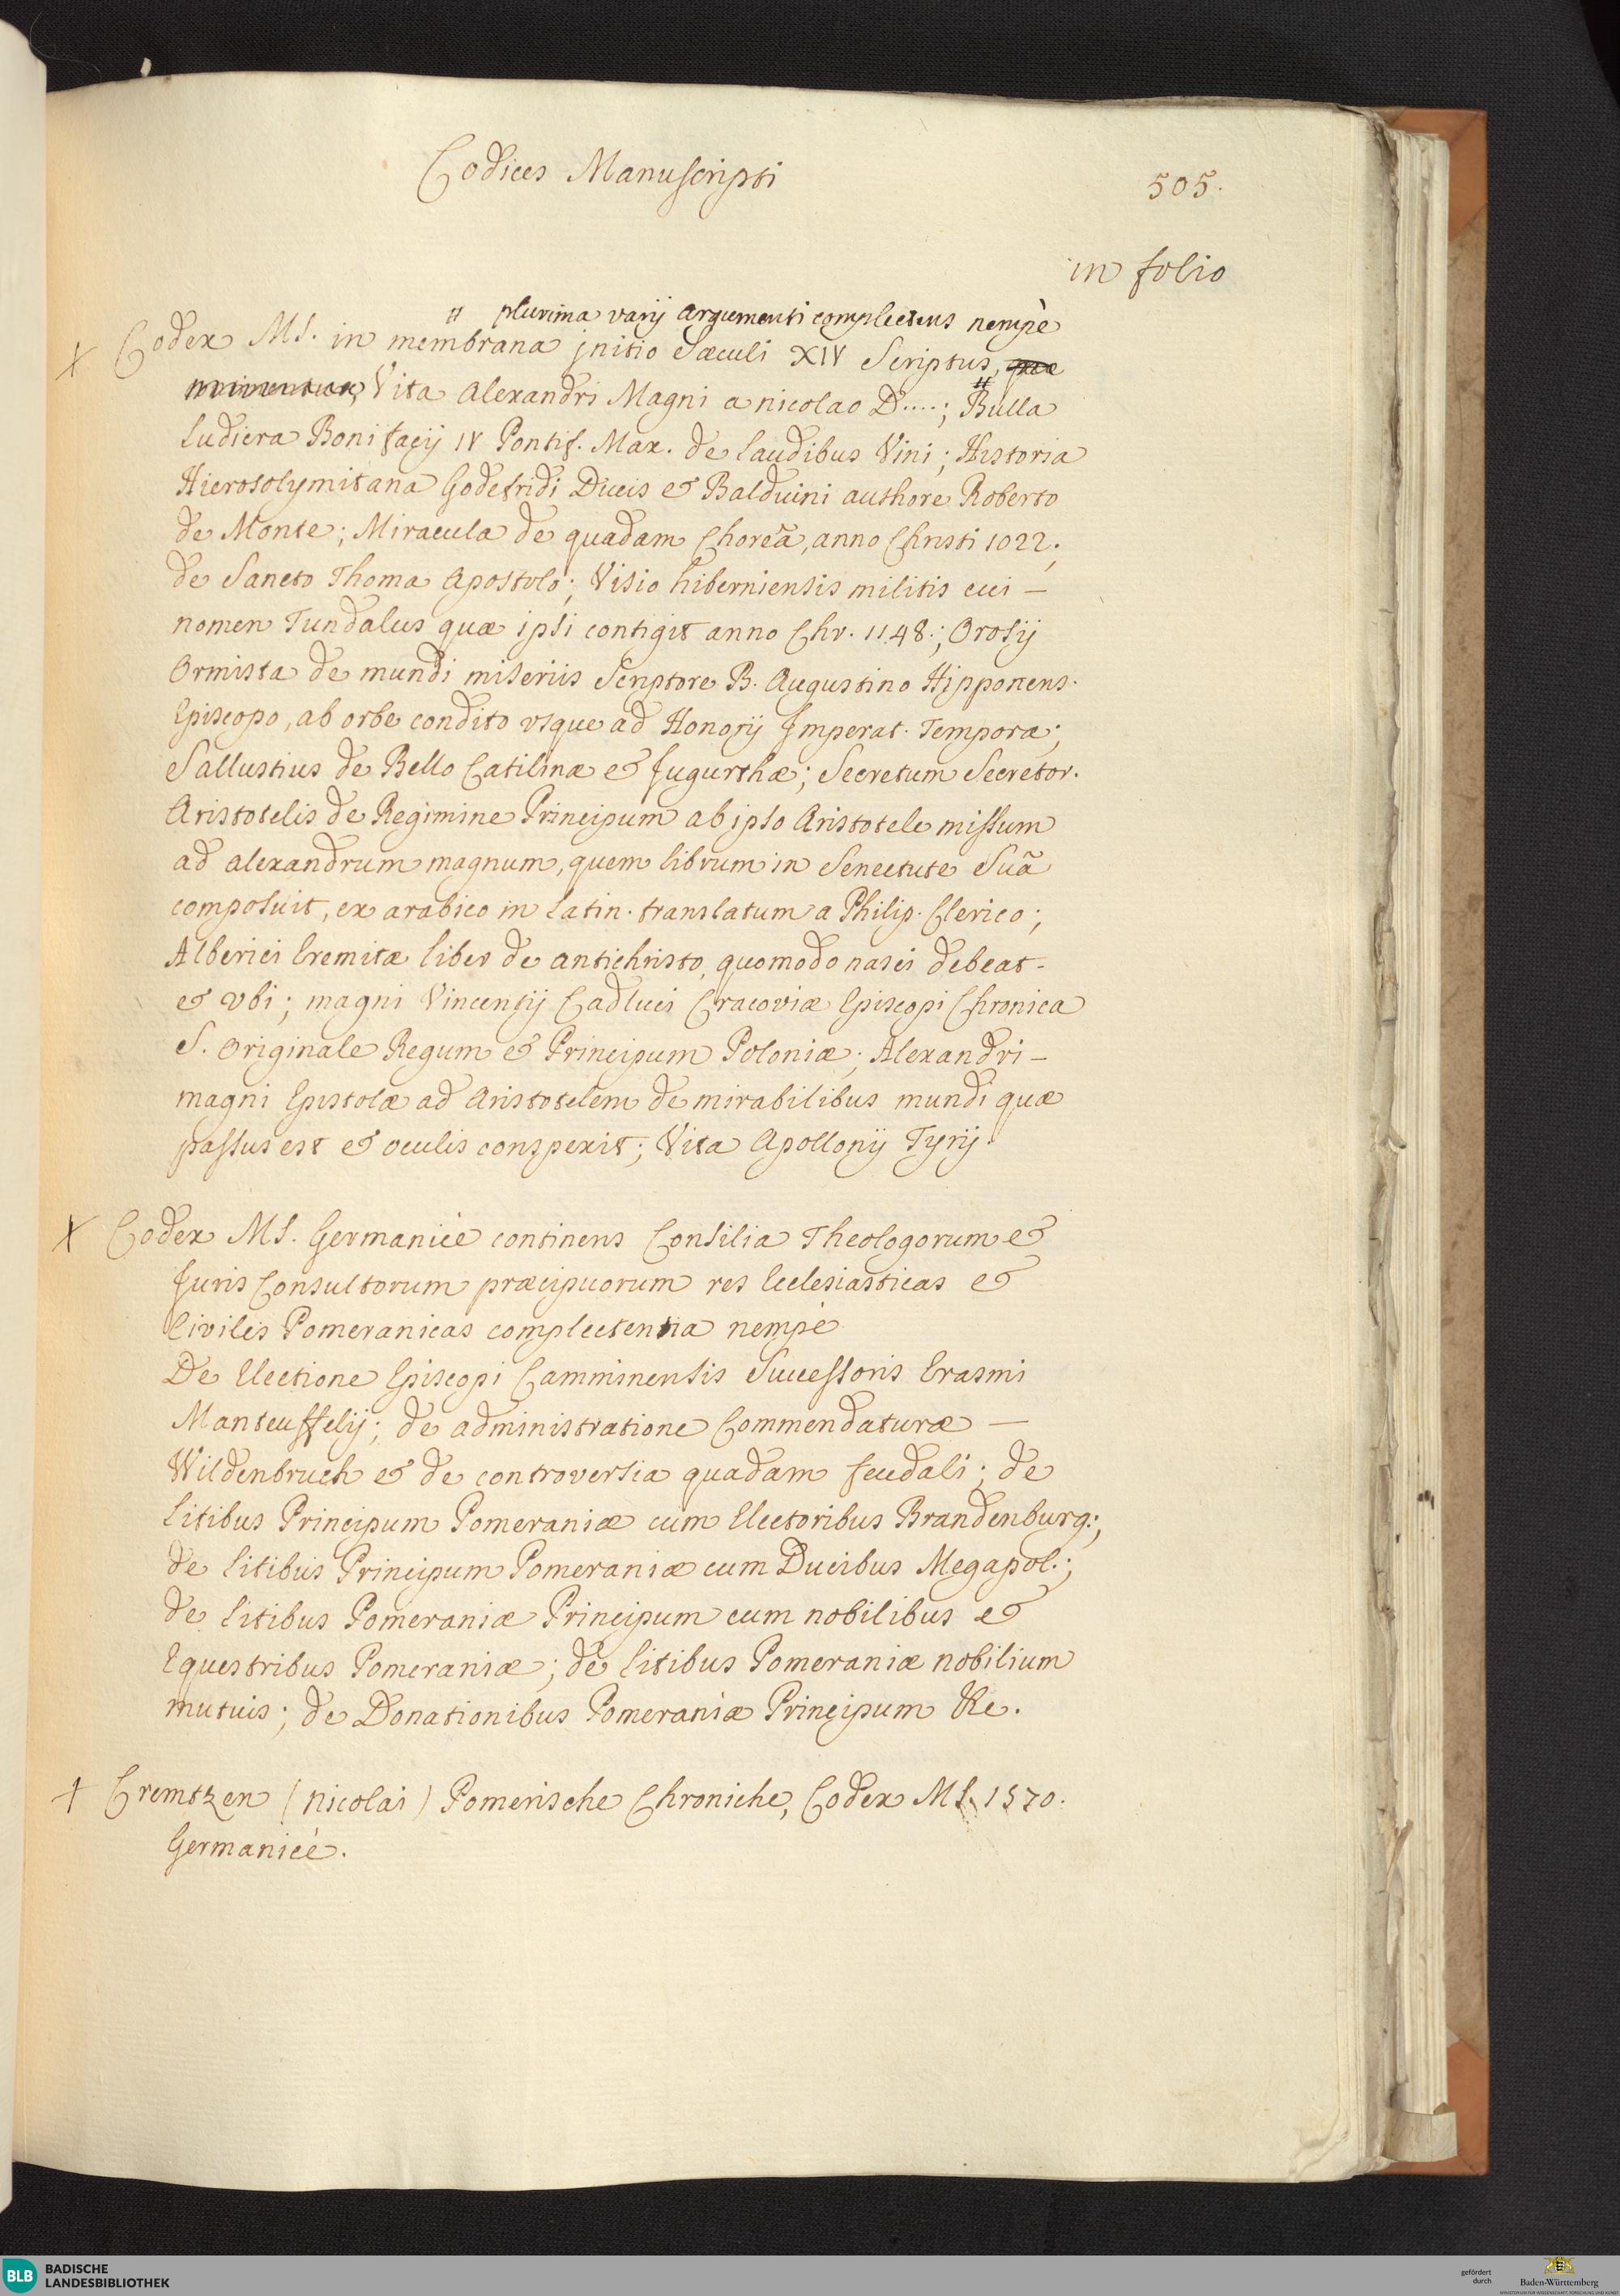 Codices Manuscripti
505.
in folio
# plurima varij argumenti complectens nempè
X Codex MS. in membrana jnitio Sæculi XIV Scriptus, quæ
Vita Alexandri Magni a nicolao D....; # Bulla
ludicra Bonifacij IV Pontif. Max. de laudibus Vini; Historia
Hierosolymitana Godefridi Ducis & Balduini authore Roberto
de Monte; Miracula de quadam Choreâ, anno Christi 1022;
de Sancto Thoma Apostolo; Visio hiberniensis militis cui –
nomen Tundalus quæ ipsi contigit anno Chr. 1148.; Orosij
Ormista de mundi miseriis Scriptore B. Augustino Hipponens.
Episcopo, ab orbe condito vsque ad Honorij Jmperat. Tempora;
Sallustius de Bello Catilinæ & Jugurthæ; Secretum Secretor.
Aristotelis de Regimine Principum ab ipso Aristotele missum
ad alexandrum magnum, quem librum in Senectute Suâ
composuit, ex arabico in Latin. translatum a Philip. Clerico;
Alberici Eremitæ liber de antichristo, quomodo nasci debeat –
& vbi; magni Vincentij Cadluci Cracoviæ Episcopi Chronica
S. Originale Regum & Principum Poloniæ; Alexandri –
magni Epistolæ ad Aristotelem de mirabilibus mundi quæ
passus est & oculis conspexit; Vita Apollonij Tyrij.
X Codex MS. Germanicè continens Consilia Theologorum &
Juris Consultorum præcipuorum res Ecclesiasticas &
Civiles Pomeranicas complectentia nempè
De Electione Episcopi Camminensis Successoris Erasmi
Manteuffelij; de administratione Commendaturæ –
Wildenbruch & de controversia quadam feudali; de
litibus Principum Pomeraniæ cum Electoribus Brandenburg.;
de litibus Principum Pomeraniæ cum Ducibus Megapol.;
de litibus Pomeraniæ Principum cum nobilibus &
Equestribus Pomeraniæ; de litibus Pomeraniæ nobilium
mutuis; de Donationibus Pomeraniæ Principum &c.
+ Cremtzen (nicolai) Pomerische Chroniche, Codex MS. 1570.
Germanicè.
BLB BADISCHE
LANDESBIBLIOTHEK
gefördert
durch
Baden-Württemberg
MINISTERIUM FÜR WISSENSCHAFT, FORSCHUNG UND KUNST